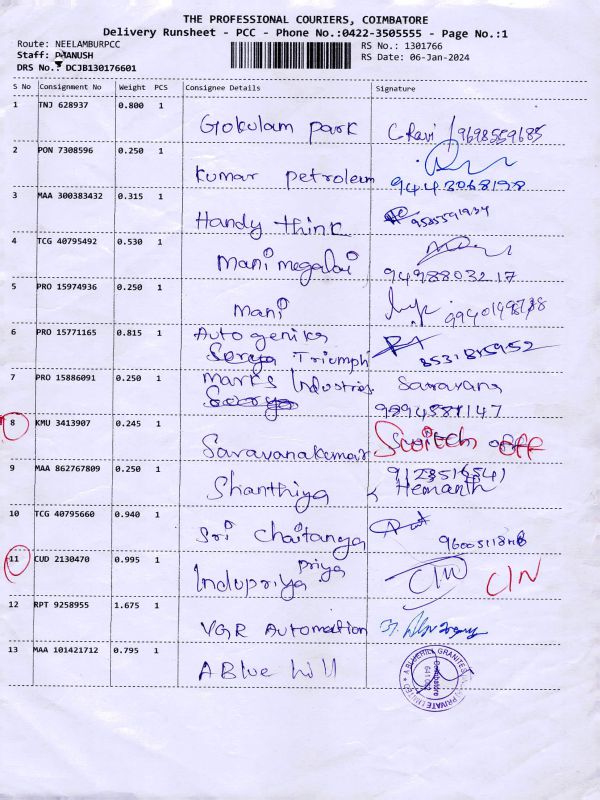 THE PROFESSIONAL COURIERS, COIMBATORE
Delivery Runsheet - PCC - Phone No.:0422-3505555 - Page No.:1
Route: NEELAMBURPCC
RS No.: 1301766
Staff: DHANUSH
RS Date: 06-Jan-2024
DRS No.: DCJB130176601
S No Consignment No Weight PCS Consignee Details Signature
1 TNJ 628937 0.800 1
Gokulam park C Ravi / 9698559685
2 PON 7308596 0.250 1
Kumar petroleum 9443068198
3 MAA 300383432 0.315 1
Handy think
4 TCG 40795492 0.530 1
Manimegalai 9498803217
5 PRO 15974936 0.250 1
Mani
6 PRO 15771165 0.815 1 Autogenics
Soraya Triumph
7 PRO 15886091 0.250 1 Marks Industries Saravana
9894581147
8 KMU 3413907 0.245 1
Saravanakumar Switch off
9 MAA 862767809 0.250 1
Shanthiya Hemanth
10 TCG 40795660 0.940 1
Sri Chaitanya
11 CUD 2130470 0.995 1 priya
Indupriya CIN CIN
12 RPT 9258955 1.675 1
VGR Automation
13 MAA 101421712 0.795 1
A Blue hill